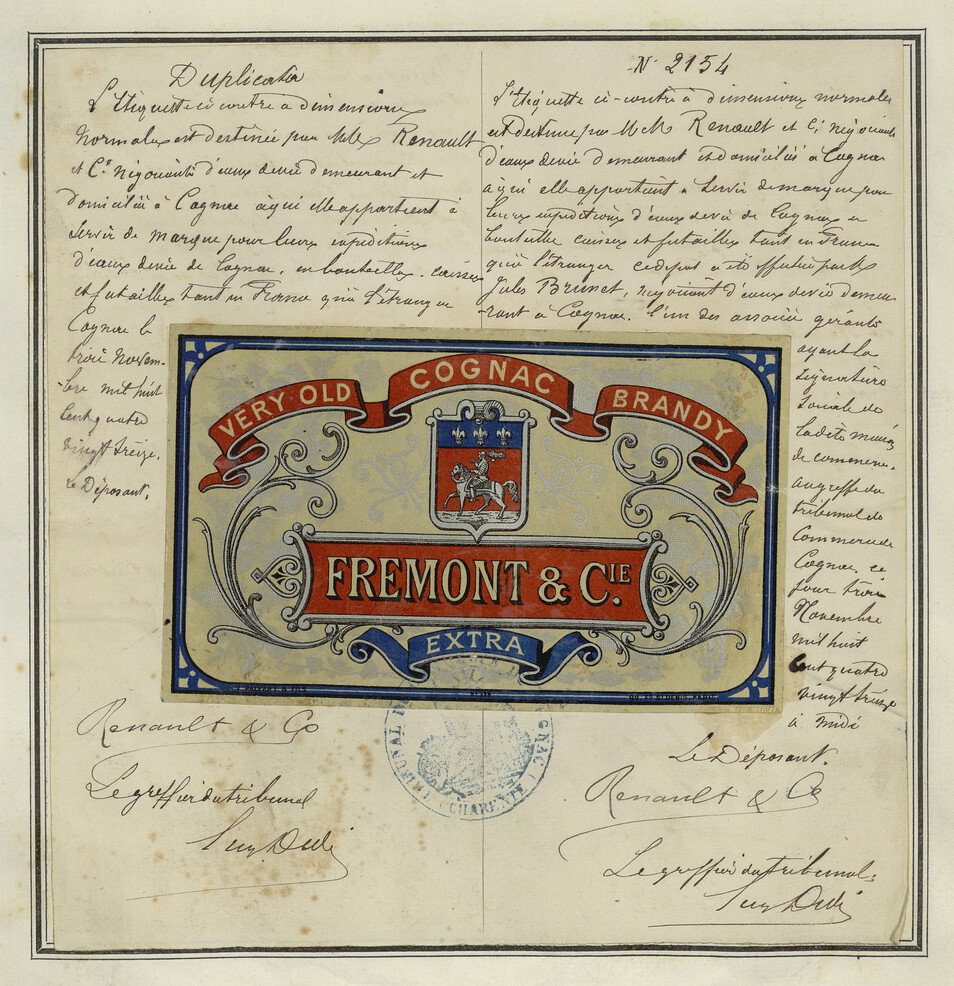 Duplicata
L'Etiquette ci contre à dimensions
Normales est destinée par MM Renault
et Cie Négociants d'eaux de vie demeurant et
domiciliés à Cognac à qui elle appartient à
servir de marque pour leurs expéditions
d'eaux de vie de Cognac, en bouteilles, caisses
et futailles tant en France qu'à l'étranger
Cognac le
trois Novem-
-bre mil huit
cent quatre
vingt treize.
Le Déposant.
Renault & Co
Le greffier du tribunal
N° 2154
L'Etiquette ci-contre à dimensions normales
est destinée par MM Renault et Cie négociants
d'eaux de vie demeurant et domiciliés à Cognac
à qui elle appartient à servir de marque pour
leurs expéditions d'eaux de vie de Cognac en
bouteilles caisses et futailles tant en France
qu'à l'étranger ce dépot a été effectué par Mr
Jules Brunet, négociant d'eaux de vie demeu-
-rant à Cognac. l'un des associés gérants
ayant la
signature
sociale de
la dite maison
de commerce.
au greffe du
tribunal de
Commerce de
Cognac, ce
jour trois
Novembre
mil huit
cent quatre
vingt treize
à midi
Le Déposant.
Renault & Co
Le greffier du tribunal.
VERY OLD COGNAC BRANDY
FREMONT & CIE.
EXTRA
TRIBUNAL DE COGNAC
CHARENTE